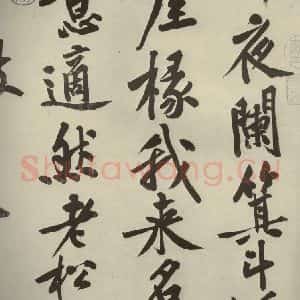 夜闌箕斗
屋椽我来名
意適然老松
ShuFaWang.Cn